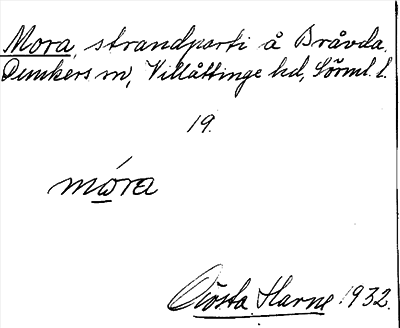 Mora, strandparti å Bråvda.
Dunkers sn, Villåttinge hd, Sörml. l.
19.
móra
Gösta Harne 1932.